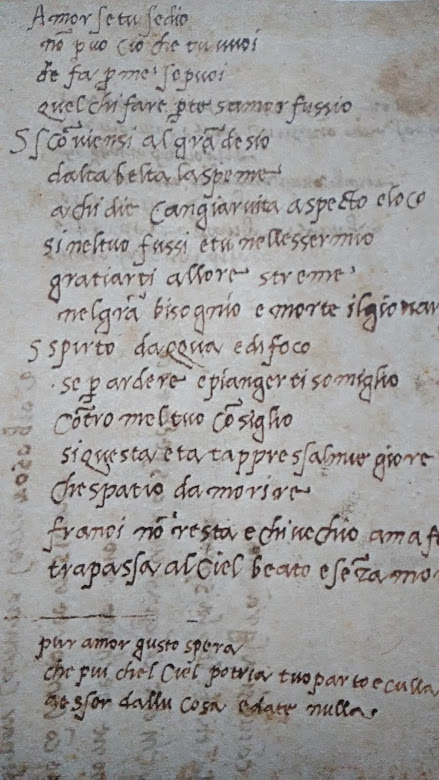 Amor se tu se dio
nō puo cio che tu vuoi
de fa p̱ me se puoi
quel chi fare p̱ te samor fussio
Scōviensi al grā desio
dalta belta la speme
a chi die cangiar vita aspecto e loco
si nel tuo fussi e tu nellesser mio
gratiarti allore streme
nel grā bisognio e morte il giovar
spirto dacqua e di foco
se p̱ ardere e piangerti somiglio
cōtro mel tuo cōsiglio
si questa eta tappressa
che spatio da morire
fra noi nō resta e chi vechio ama
trapassa al ciel beato e sēza mo
pur amor gusto spera
che piu chel ciel potria tuo parto e culla
cosa e da te nulla.